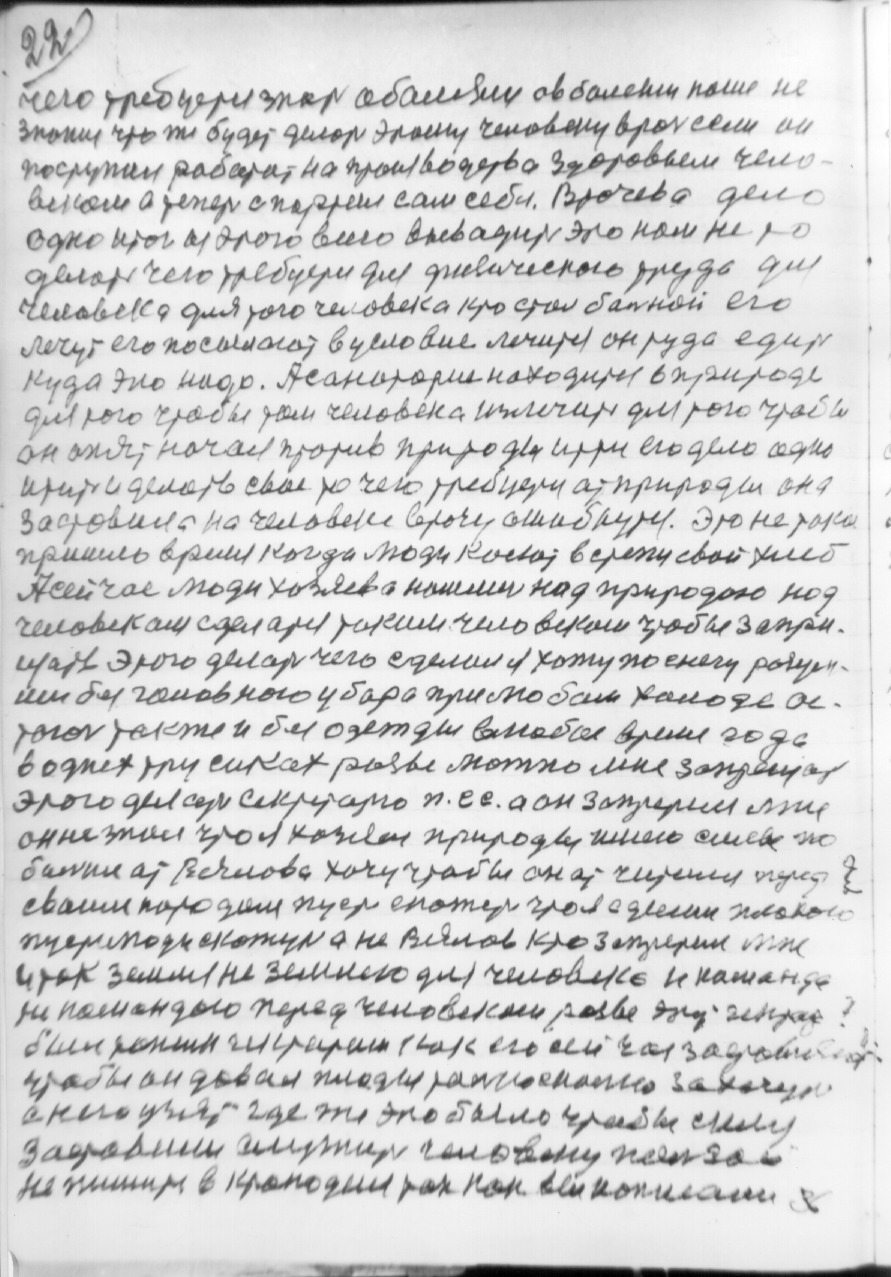 22
чего требуется знат абалезни овболении наше не
знание что же будет делат этому человеку врач если он
поступил работат на производства здоровьем чело-
веком а тепер спортил сам себя. Врочева дело
одно итог из этого всего вывадит это нам не то
делат чего требуется для физического труда для
человека для того человека кто стал балной его
лечут его посылают вусловие лечится он туда едит
куда это надо. Асанаторие находится вприроде
для того чтобы там человека излечит для того чтобы
он опят начал против природы итти его дело одно
итит и делать свае то чего требуется ат природы она
заставила на человеке врачу ошибнутся. Это не така
пришло время когда люди косют встепи свой хлеб
Асейчас люди хозяева нашли над природою над
человеком сделатся таким человеком чтобы запри-
щать этого делат чего сделал я хожу поснегу разум-
ши без головного убора при любом холоде ос-
тогот также и без одежды влюбое время года
в однех трусиках разве можно мне запрещат
этого делат секретарю п.сс. а он запретил мне
он не знал что я хозяин природы имею силы по
болше ат Вялова хочу чтобы он ат читался перед
сваим народом пуст скажет что я сделал плохого
пуст люди скажут а не Вялов кто запретил мне
и так земля не землею для человека и команда
не командою перед человеком разве эту
был
чтобы он довал плоды захочут
а него узят где же это было чтобы силу
заставили служит человеку ползой
не пишите в крокодил так как вы написали